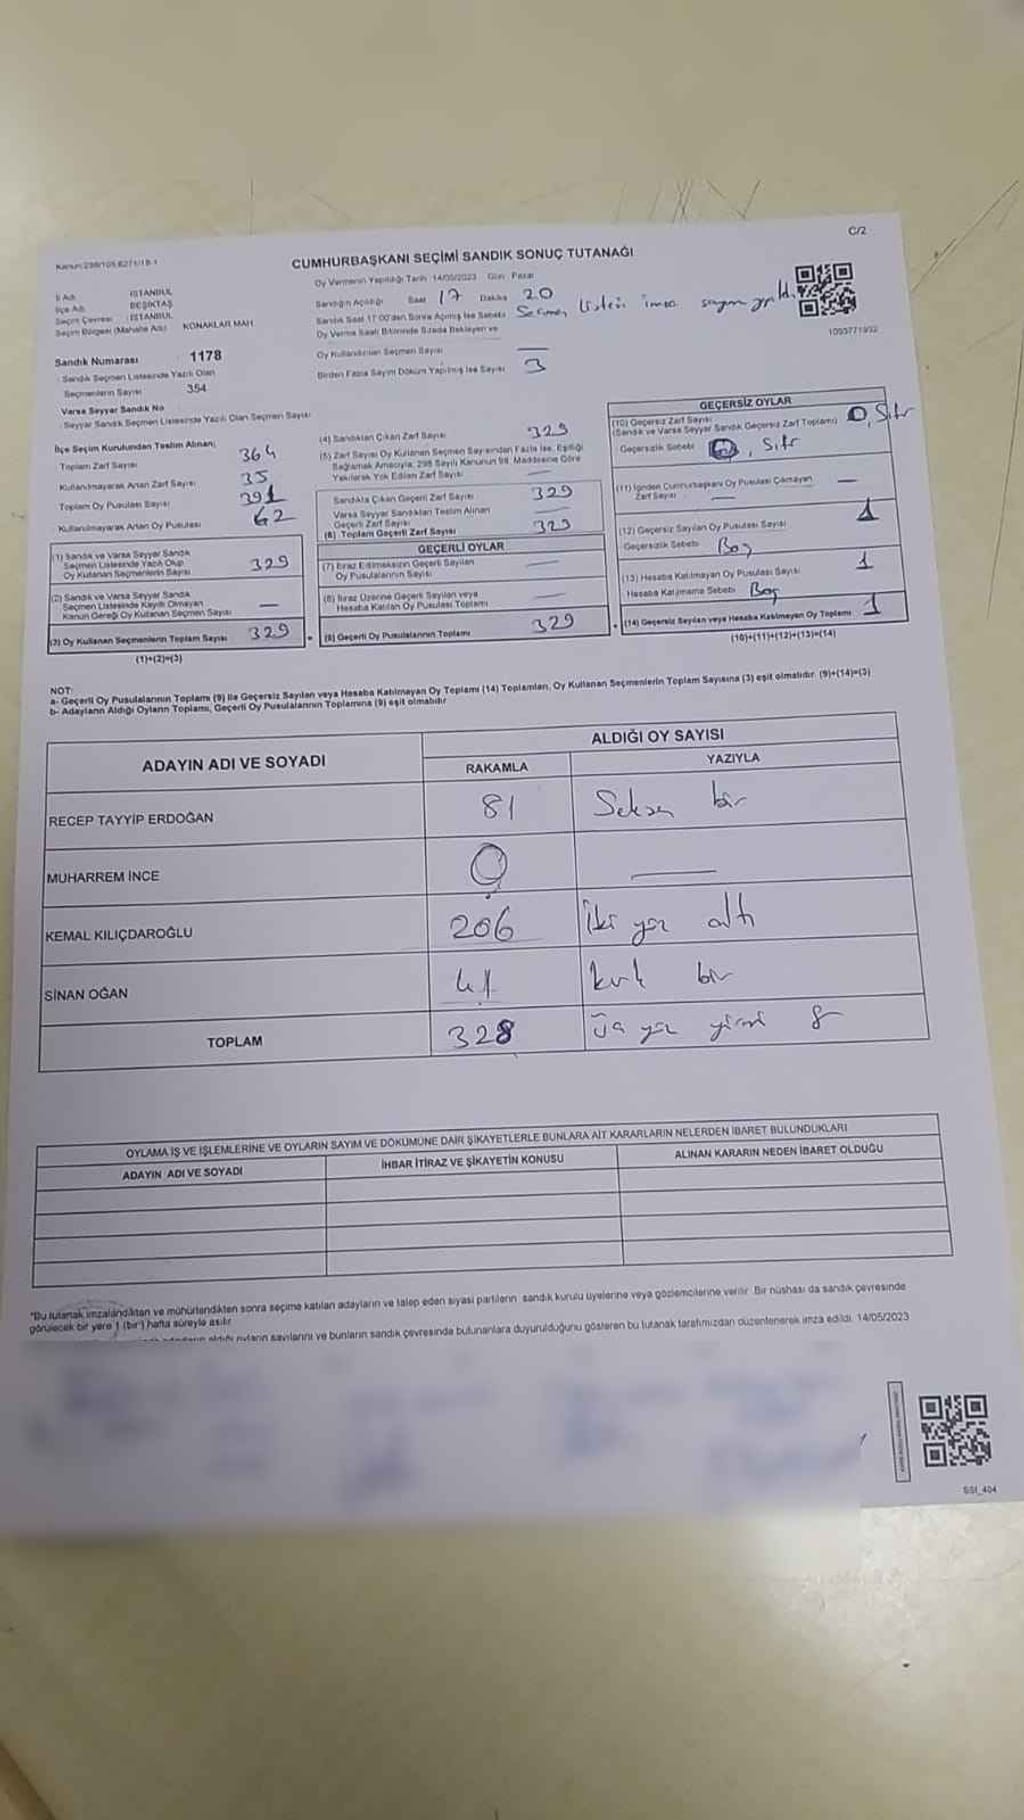 C/2
CUMHURBAŞKANI SEÇİMİ SANDIK SONUÇ TUTANAĞI
Oy Vermenin Yapıldığı Tarih :14/05/2023 Gün: Pazar
İl Adı : İSTANBUL
İlçe Adı : BEŞİKTAŞ
Seçim Çevresi : İSTANBUL
Seçim Bölgesi (Mahalle Adı) : KONAKLAR MAH.
Sandığın Açıldığı Saat 17 Dakika 20
Sandık Saat 17.00'den Sonra Açılmış İse Sebebi Seçmen listesi imza sayımı yapıldı.
Oy Verme Saati Bitiminde Sırada Bekleyen ve
Oy Kullandırılan Seçmen Sayısı —
Birden Fazla Sayım Döküm Yapılmış İse Sayısı 3
1093771932
Sandık Numarası : 1178
Sandık Seçmen Listesinde Yazılı Olan
Seçmenlerin Sayısı : 354
Varsa Seyyar Sandık No
Seyyar Sandık Seçmen Listesinde Yazılı Olan Seçmen Sayısı:
İlçe Seçim Kurulundan Teslim Alınan;
Toplam Zarf Sayısı 364
Kullanılmayarak Artan Zarf Sayısı 35
Toplam Oy Pusulası Sayısı 391
Kullanılmayarak Artan Oy Pusulası 62
(1) Sandık ve Varsa Seyyar Sandık
Seçmen Listesinde Yazılı Olup
Oy Kullanan Seçmenlerin Sayısı 329
(2) Sandık ve Varsa Seyyar Sandık
Seçmen Listesinde Kayıtlı Olmayan
Kanun Gereği Oy Kullanan Seçmen Sayısı —
(3) Oy Kullanan Seçmenlerin Toplam Sayısı 329
(1)+(2)=(3)
(4) Sandıktan Çıkan Zarf Sayısı 329
(5) Zarf Sayısı Oy Kullanan Seçmen Sayısından Fazla İse, Eşitliği
Sağlamak Amacıyla, 298 Sayılı Kanunun 98. Maddesine Göre
Yakılarak Yok Edilen Zarf Sayısı —
Sandıkta Çıkan Geçerli Zarf Sayısı 329
Varsa Seyyar Sandıktan Teslim Alınan
Geçerli Zarf Sayısı —
(6) Toplam Geçerli Zarf Sayısı 329
GEÇERLİ OYLAR
(7) İtiraz Edilmeksizin Geçerli Sayılan
Oy Pusulalarının Sayısı —
(8) İtiraz Üzerine Geçerli Sayılan veya
Hesaba Katılan Oy Pusulası Toplamı —
(9) Geçerli Oy Pusulalarının Toplamı 329
GEÇERSİZ OYLAR
(10) Geçersiz Zarf Sayısı
(Sandık ve Varsa Seyyar Sandık Geçersiz Zarf Toplamı) 0, Sıfır
Geçersizlik Sebebi , Sıfır
(11) İçinden Cumhurbaşkanı Oy Pusulası Çıkmayan —
Zarf Sayısı —
(12) Geçersiz Sayılan Oy Pusulası Sayısı 1
Geçersizlik Sebebi Boş
(13) Hesaba Katılmayan Oy Pusulası Sayısı 1
Hesaba Katılmama Sebebi Boş
(14) Geçersiz Sayılan veya Hesaba Katılmayan Oy Toplamı 1
(10)+(11)+(12)+(13)=(14)
NOT:
a- Geçerli Oy Pusulalarının Toplamı (9) ile Geçersiz Sayılan veya Hesaba Katılmayan Oy Toplamı (14) Toplamları, Oy Kullanan Seçmenlerin Toplam Sayısına (3) eşit olmalıdır. (9)+(14)=(3)
b- Adayların Aldığı Oyların Toplamı, Geçerli Oy Pusulalarının Toplamına (9) eşit olmalıdır
ADAYIN ADI VE SOYADI
ALDIĞI OY SAYISI
RAKAMLA YAZIYLA
RECEP TAYYİP ERDOĞAN 81 Seksen bir
MUHARREM İNCE 0 —
KEMAL KILIÇDAROĞLU 206 İki yüz altı
SİNAN OĞAN 41 kırk bir
TOPLAM 328 Üç yüz yirmi 8
OYLAMA İŞ VE İŞLEMLERİNE VE OYLARIN SAYIM VE DÖKÜMÜNE DAİR ŞİKAYETLERLE BUNLARA AİT KARARLARIN NELERDEN İBARET BULUNDUKLARI
ADAYIN ADI VE SOYADI İHBAR İTİRAZ VE ŞİKAYETİN KONUSU ALINAN KARARIN NEDEN İBARET OLDUĞU
"Bu tutanak imzalandıktan ve mühürlendikten sonra seçime katılan adayların ve talep eden siyasi partilerin sandık kurulu üyelerine veya gözlemcilerine verilir. Bir nüshası da sandık çevresinde
görülecek bir yere 1 (bir) hafta süreyle asılır.
adayların aldığı oyların sayılarını ve bunların sandık çevresinde bulunanlara duyurulduğunu gösteren bu tutanak tarafımızdan düzenlenerek imza edildi. 14/05/2023
SSI_404